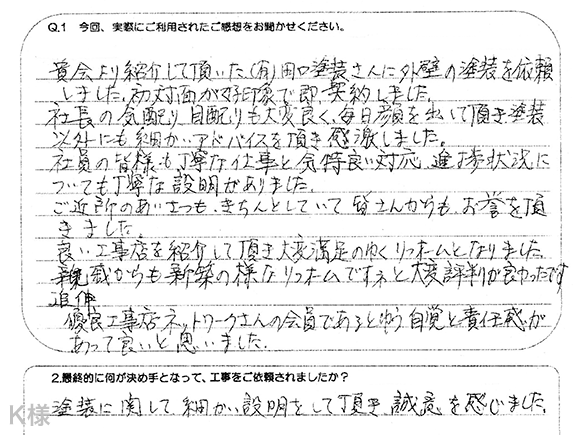 Q.1 今回、実際にご利用されたご感想をお聞かせください。
貴会より紹介して頂いた(有)田口塗装さんに外壁の塗装を依頼
しました。初対面が好印象で即、契約しました。
社長の気配り、目配りも大変良く、毎日顔を出して頂き塗装
以外にも細かいアドバイスを頂き感激しました。
社員の皆様も丁寧な仕事と気持良い対応、進捗状況に
ついても丁寧な説明がありました。
ご近所のあいさつも、きちんとしていて皆さんからも、お誉を頂
きました。
良い工事店を紹介して頂き大変満足のゆくリホームとなりました。
親戚からも新築の様なリフォームですネと大変評判が良かったです
追伸
優良工事店ネットワークさんの会員であるとゆう自覚と責任感が
あって良いと思いました。
2.最終的に何が決め手となって、工事をご依頼されましたか?
塗装に関して細かい説明をして頂き、誠意を感じました。
K様